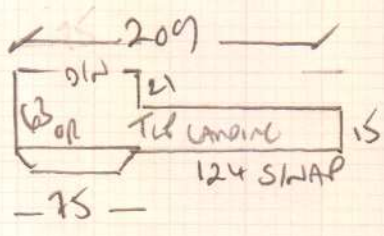 209
DIN 21
63 OR LANDING 15
124 S/NAP
75